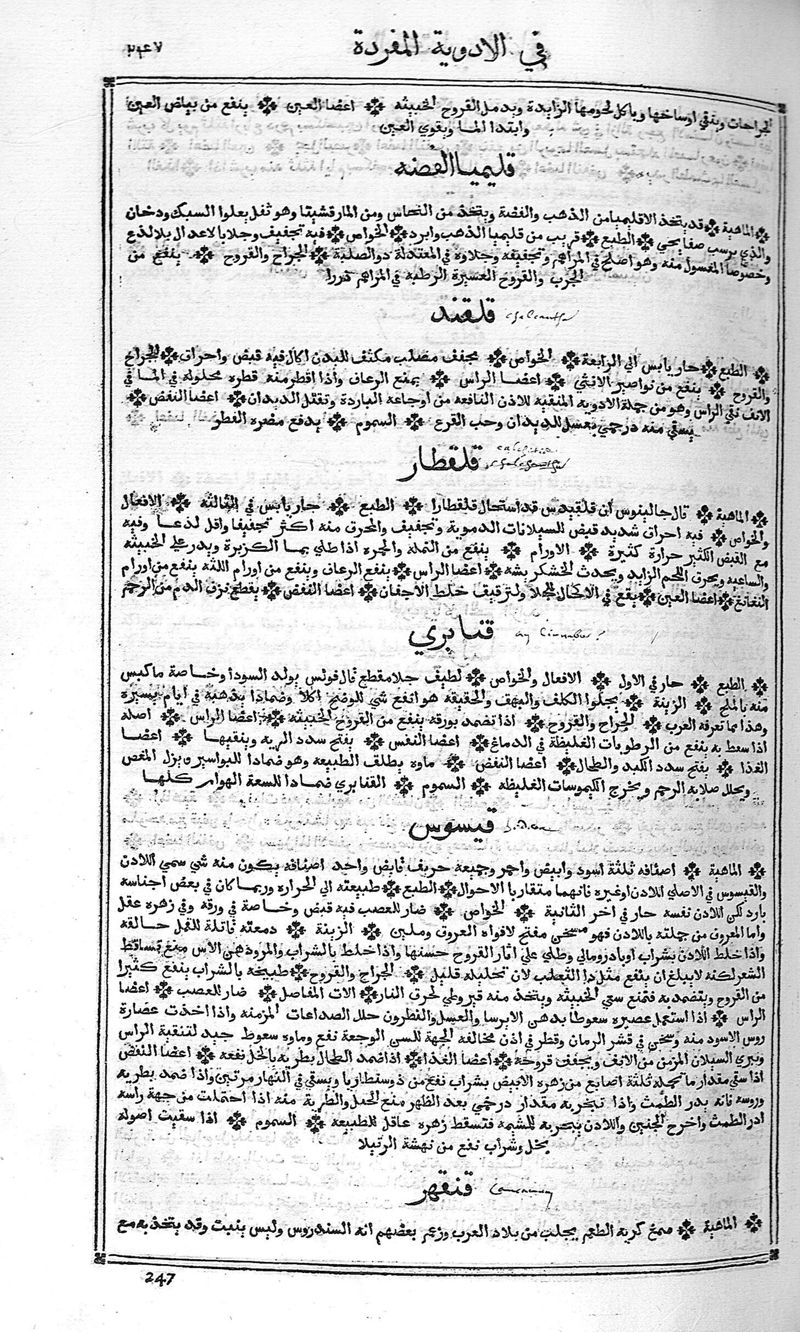 في الادوية المفردة
٢٤٧
الجراحات وينقي اوساخها وياكل لحومها الزايدة ويدمل القروح الخبيثه ❊ اعضا العين ❊ ينفع من بياض العين
وابتدا الما ويقوي العين
قليميا الفضه
❊ الماهية ❊ قد يتخذ الاقليميا من الذهب والفضة ويتخذ من النحاس ومن المارقشيتا وهو ثفل يعلوا السبك ودخان
والذي يرسب صفايحي ❊ الطبع ❊ قريب من قليميا الذهب وابرد ❊ الخواص ❊ فيه تجفيف وجلا باعتدال بلا لذع
وخصوصا المغسول منه وهو اصلح في المراهم وتجفيفه وجلاوه في المعتدلة دو الصلبة ❊ الجراح والقروح ❊ ينفع من
الجرب والقروح العسيرة الرطبه في المراهم ذرورا
قلقند
❊ الطبع ❊ حار يابس الي الرابعة ❊ الخواص ❊ مجفف مصلب مكثف للبدن اكال فيه قبض واحراق ❊ الجراح
والقروح ❊ ينفع من نواصير الانف ❊ اعضا الراس ❊ يمنع الرعاف واذا اقطر منه قطره محلوله في الما في
الانف نقي الراس وهو من جملة الادوية المنقيه للاذن النافعه من اوجاعه الباردة وتقتل الديدان ❊ اعضا النفض ❊
يسقي منه درخمي بعسل للديدان وحب القرع ❊ السموم ❊ يدفع مضره الفطر
قلقطار
❊ الماهية ❊ قال جالينوس ان قلقيدس قد استحال قلقطارا ❊ الطبع ❊ حار يابس في الثالثه ❊ الافعال
والخواص ❊ فيه احراق شديد قبض للسيلانات الدموية وتجفيف والمحرق منه اكثر تجفيفا واقل لذعا وفيه
مع القبض الكثير حرارة كثيرة ❊ الاورام ❊ ينفع من النملة والجمره اذا طلي بما الكزبرة ويدر علي الخبيثه
والساعيه ويحرق اللحم الزايد ويحدث الخشكريشه ❊ اعضا الراس ❊ ينفع الرعاف وينفع من اورام اللثه ينفع من اورام
النغانغ ❊ اعضا العين ❊ يقع في الاكحال ولترقيق غلظ الاجفان ❊ اعضا النفض ❊ يقطع نزف الدم من الرحم
قنابري
❊ الطبع ❊ حار في الاول ❊ الافعال والخواص ❊ لطيف جلا مقطع قال فولس يولد السودا وخاصة ما كبس
منه بالملح ❊ الزينة ❊ يجلوا الكلف والبهق والحقيقه هو انفع شي للوضح اكلا وضمادا يذهبه في ايام يسيره
وهذا مما تعرفه العرب ❊ الجراح والقروح ❊ اذا تضمد بورقه ينفع من القروح الخبيثه ❊ اعضا الراس ❊ اصله
اذا سعط به ينفع من الرطوبات الغليظة في الدماغ ❊ اعضا النفس ❊ يفتح سدد الريه وينقيها ❊ اعضا
الغذا ❊ يفتح سدد الكبد والطحال ❊ اعضا النفض ❊ ماوه يطلق الطبيعه وهو ضمادا للبواسير ويزل المغص
ويحلل صلابه الرحم ويخرج الكيموسات الغليظه ❊ السموم ❊ القنابري ضمادا للسعة الهوام كلها
قيسوس
❊ الماهية ❊ اصنافه ثلثة اسود وابيض واحمر وجميعه حريف قابض واحد اصنافه يكون منه شي سمي اللادن
والقيسوس في الاصل اللادن او غيره فانهما متقاربا الاحوال ❊ الطبع ❊ طبيعته الي الحراره وربما كان في بعض اجناسه
بارد لكن اللادن نفسه حار في اخر الثانية ❊ الخواص ❊ ضار للعصب فيه قبض وخاصة في ورقه وفي زهره عقل
واما المعروف من جملته باللادن فهو مسخن مفتح لافواه العروق وملين ❊ الزينة ❊ دمعته قاتلة للقمل حالقه
واذا خلط اللادن بشراب اوبادرومالي وطلي علي اثار القروح حسنها واذا خلط بالشراب والمر ودهن الاس منع تساقط
الشعر لكنه لا يبلغ ان ينفع مثل داا الثعلب لان تحليله قليل ❊ الجراح والقروح ❊ طبيخه بالشراب ينفع كثيرا
من القروح ويتضمد به فتمنع سعي الخبيثه ويتخذ منه قيروطي لحرق النار ❊ الات المفاصل ❊ ضار للعصب ❊ اعضا
الراس ❊ اذا استعمل عصيره سعوطا بدهن الايرسا والعسل والنطرون حلل الصداعات المزمنه واذا اخذت عصارة
روس الاسود منه وسخن في قشر الرمان وقطر في اذن مخالفه الجهة للسن الوجعة نفع وماوه سعوط جيد لتنقية الراس
ويبري السيلان المزمن من الانف ويجفف قروحه ❊ اعضا الغذا ❊ اذا ضمد الطحال بطريه بالخل نفعه ❊ اعضا النفض ❊
اذا سقي مقدار ما تحمله ثلثة اصابع من زهره الابيض بشراب نفع من ذوسنطاريا ويسقي في النهار مرتين واذا ضمد بطريه
وروسه فانه يدر الطمث واذا تبخر به مقدار درخمي بعد الطهر منع الحبل والطرية منه اذا احتملت من جهة راسه
ادر الطمث واخرج الجنين واللادن يتبخر به للمشيمه فتسقط زهره عاقل للطبيعه ❊ السموم ❊ اذا سقيت اصوله
بخل وشراب نفع من نهشة الرتيلا
قنقهر
❊ الماهية ❊ صمغ كريه الطعم يجلب من بلاد العرب وزعم بعضهم انه السندروس وليس يثبت وقد يتخذ به مع
247